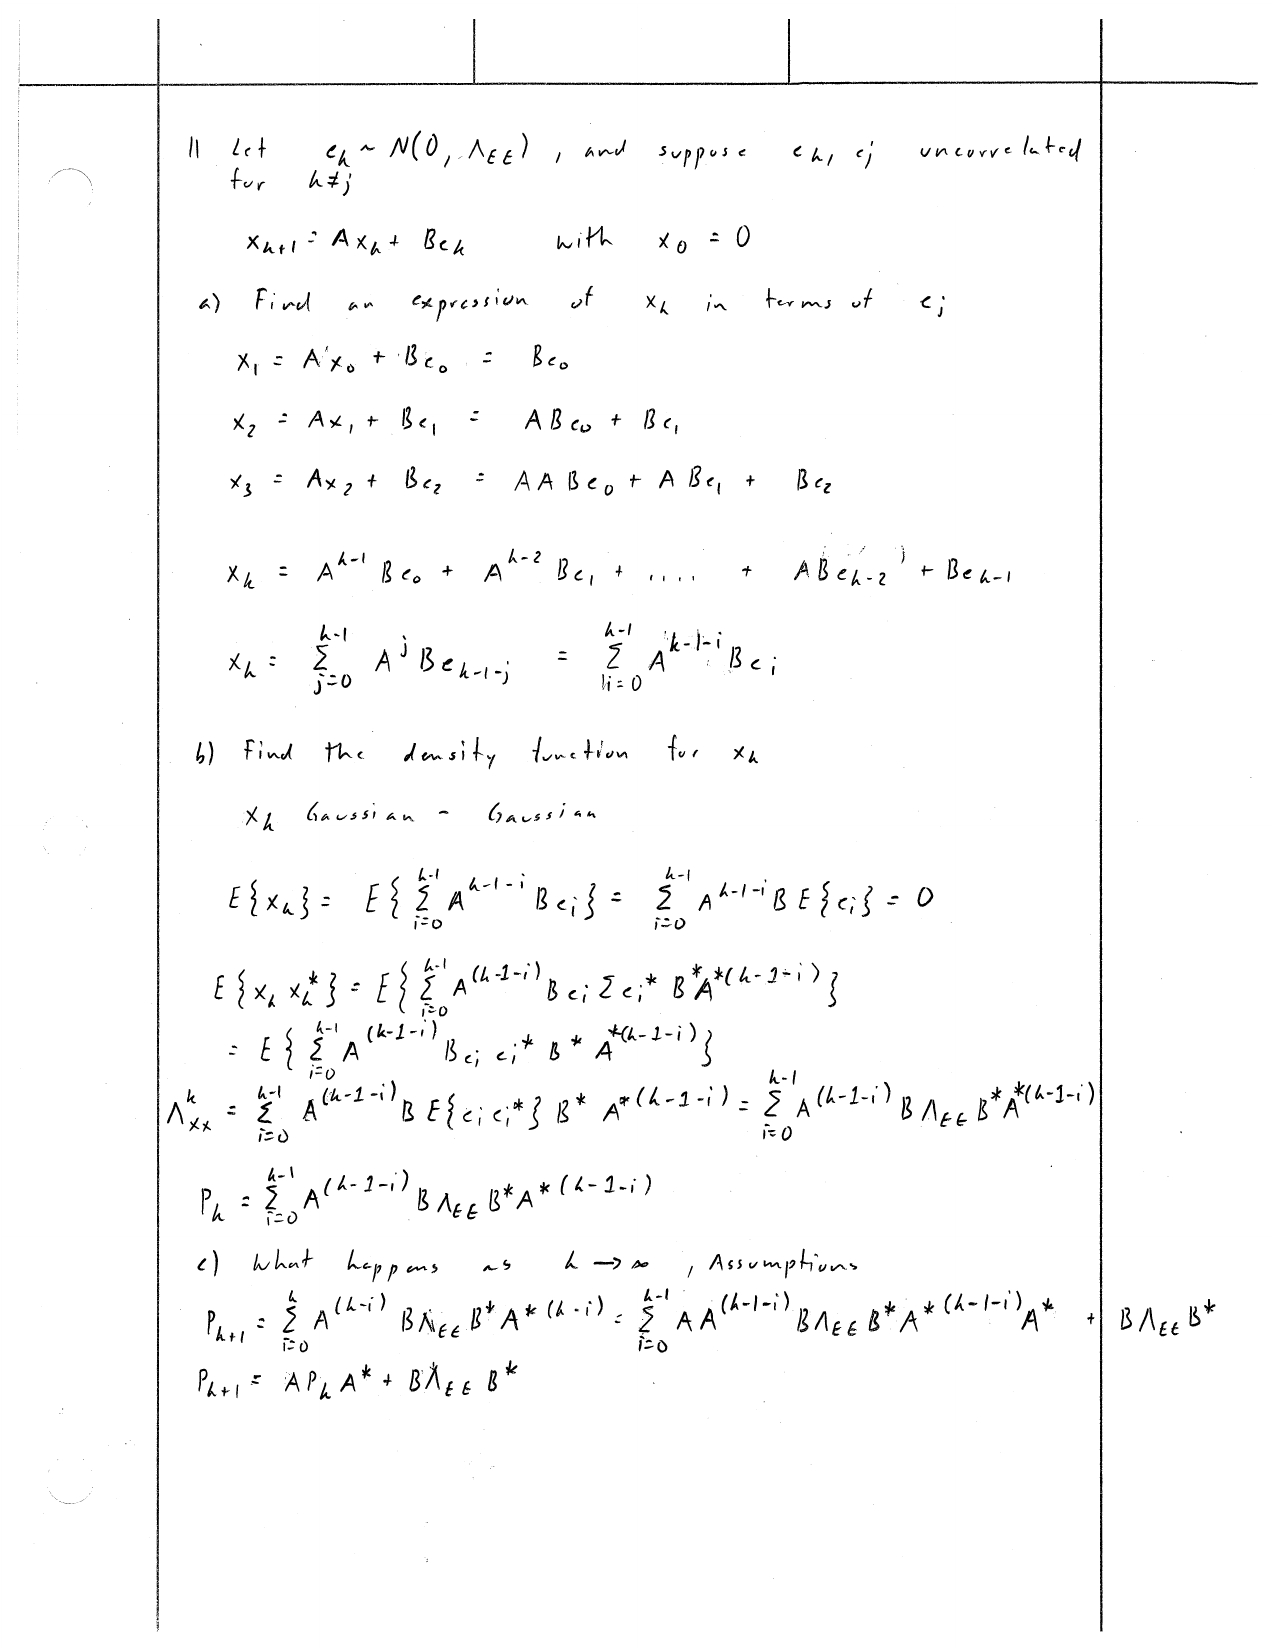 11 Let e_k ~ N(0, Λ_EE), and suppose e_k, e_j uncorrelated
for k≠j
x_{k+1} = Ax_k + Be_k with x_0 = 0
a) Find an expression of x_k in terms of e_j
x_1 = Ax_0 + Be_0 = Be_0
x_2 = Ax_1 + Be_1 = ABe_0 + Be_1
x_3 = Ax_2 + Be_2 = AABe_0 + ABe_1 + Be_2
x_k = A^{k-1}Be_0 + A^{k-2}Be_1 + .... + ABe_{k-2} + Be_{k-1}
x_k = Σ_{j=0}^{k-1} A^j Be_{k-1-j} = Σ_{i=0}^{k-1} A^{k-1-i} Be_i
b) Find the density function for x_k
x_k Gaussian - Gaussian
E{x_k} = E{Σ_{i=0}^{k-1} A^{k-1-i} Be_i} = Σ_{i=0}^{k-1} A^{k-1-i} B E{e_i} = 0
E{x_k x_k^*} = E{Σ_{i=0}^{k-1} A^{(k-1-i)} Be_i Σ e_i^* B^* A^{*(k-1-i)}}
= E{Σ_{i=0}^{k-1} A^{(k-1-i)} Be_i e_i^* B^* A^{*(k-1-i)}}
Λ_xx^k = Σ_{i=0}^{k-1} A^{(k-1-i)} B E{e_i e_i^*} B^* A^{*(k-1-i)} = Σ_{i=0}^{k-1} A^{(k-1-i)} B Λ_EE B^* A^{*(k-1-i)}
P_k = Σ_{i=0}^{k-1} A^{(k-1-i)} B Λ_EE B^* A^{*(k-1-i)}
c) What happens as k → ∞, Assumptions
P_{k+1} = Σ_{i=0}^{k} A^{(k-i)} B Λ_EE B^* A^{*(k-i)} = Σ_{i=0}^{k-1} A A^{(k-1-i)} B Λ_EE B^* A^{*(k-1-i)} A^* + B Λ_EE B^*
P_{k+1} = A P_k A^* + B Λ_EE B^*